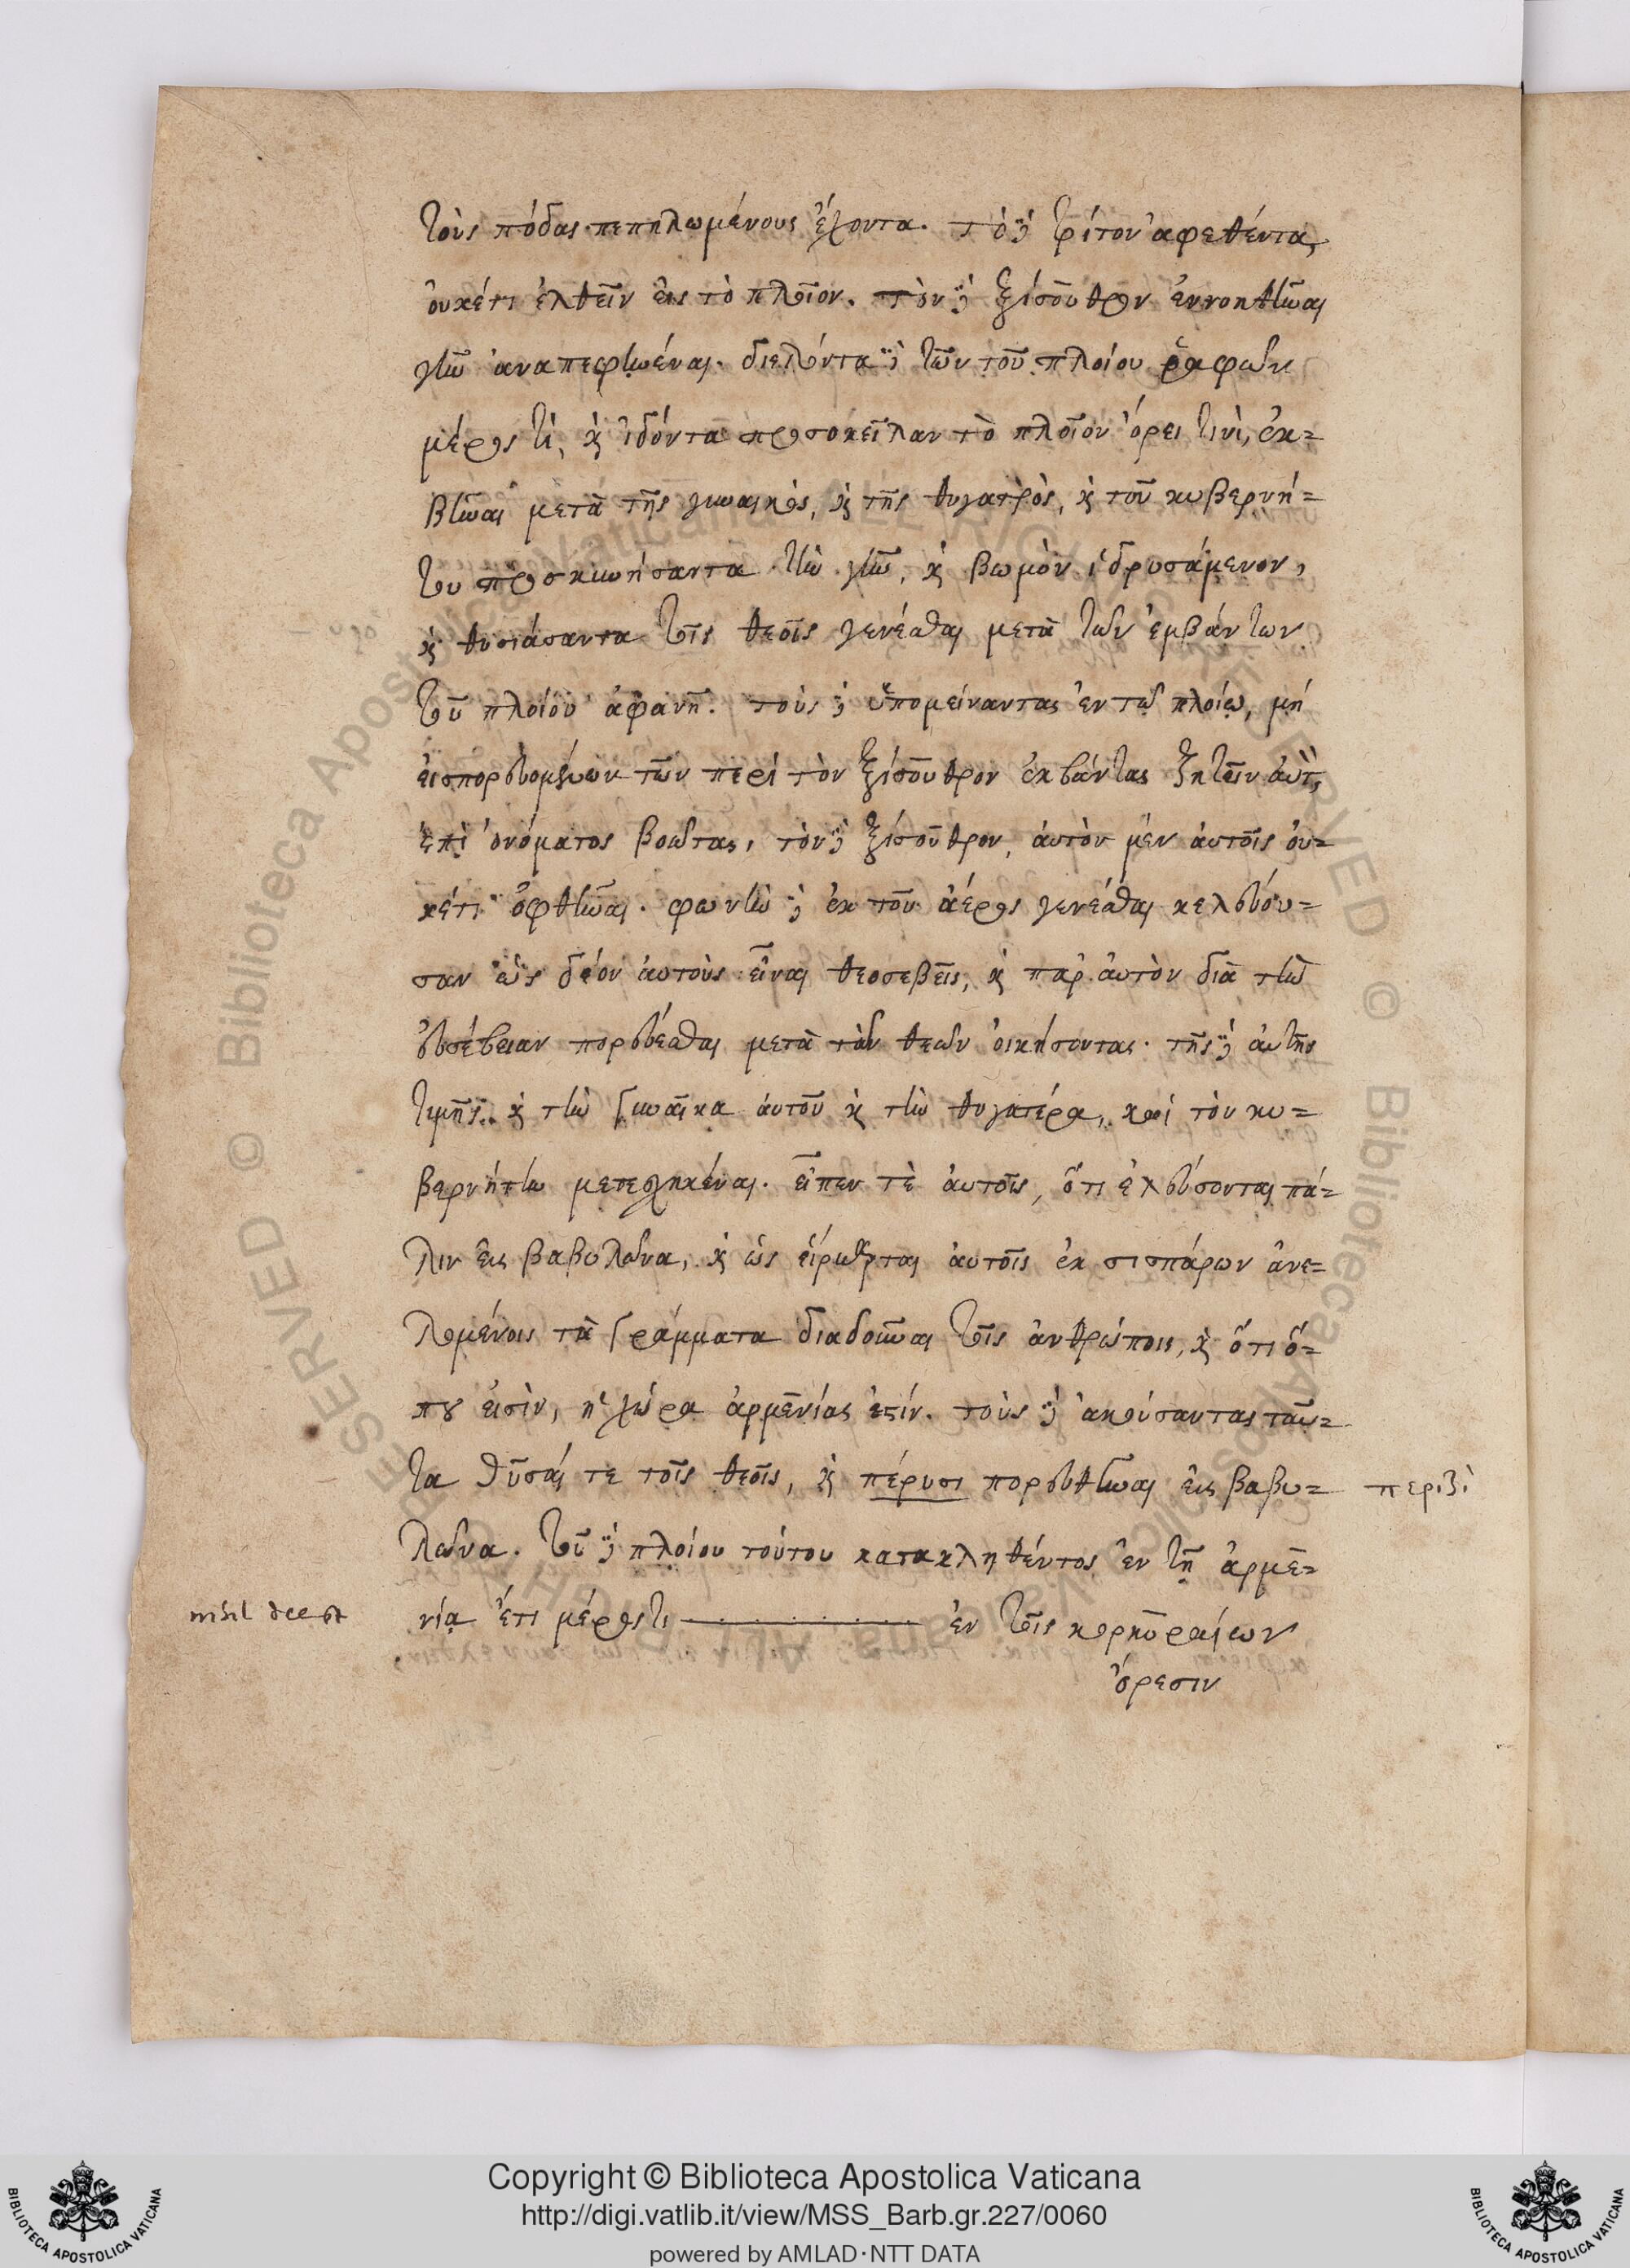 τοὺς πόδας πεπηλωμένους ἔχοντα. τὸ δὲ τρίτον ἀφεθέντα,
ὀυκέτι ἐλθεῖν εἰς τὸ πλοῖον. τὸν δὲ ξίσουθρον ἐννοηθῆναι
γῆν ἀναπεφηνέναι. διελόντα δὲ τῶν τοῦ πλοίου ῥαφῶν
μέρος τὶ, καὶ ἰδόντα προσοκεῖλαν τὸ πλοῖον ὄρει τινὶ, ἐκ=
βῆναι μετὰ τῆς γυναικὸς, καὶ τῆς θυγατρὸς, καὶ τοῦ κυβερνή=
του προσκυνήσαντα τὴν γῆν, καὶ βωμὸν ἱδρυσάμενον,
καὶ θυσιάσαντα τοῖς θεοῖς γενέσθαι μετὰ τῶν ἐμβάντων
τοῦ πλοίου ἀφανῆ. τοὺς δὲ ὑπομείναντας ἐν τῷ πλοίῳ, μή
εἰσπορευομένων τῶν περὶ τὸν ξίσουθρον ἐκβάντας ζητεῖν αὐτ,
ἐπὶ ὀνόματος βοῶτας, τὸν δὲ ξίσουθρον, ἀυτὸν μὲν ἀυτοῖς ὀυ=
κέτι ὀφθῆναι. φωνὴν δὲ ἐκ τοῦ ἀέρος γενέσθαι κελεύου=
σαν ὡς δέον ἀυτοὺς εἶναι θεοσεβεῖς, καὶ παρ ἀυτὸν διὰ τὴν
ἐυσέβειαν πορεύεσθαι μετὰ τῶν θεῶν ὀικήσοντας. τῆς δὲ ἀυτῆς
τιμῆς καὶ τὴν γυναῖκα ἀυτοῦ καὶ τὴν θυγατέρα, καὶ τὸν κυ=
βερνήτην μετεσχηκέναι. εἶπεν τὲ ἀυτοῖς, ὅτι ἐλεύσονται πά=
λιν εἰς βαβυλῶνα, καὶ ὡς εἵμαρται ἀυτοῖς ἐκ σισπάρων ἀνε=
λομένοις τὰ γράμματα διαδοῦναι τοῖς ἀνθρώποις, καὶ ὅτι ὅ=
που εἰσὶν, ἡ χώρα ἀρμενίας ἐστίν. τοὺς δὲ ἀκούσαντας ταῦ=
τα θῦσαί τε τοῖς θεοῖς, καὶ πέρυσι πορευθῆναι εἰς βαβυ= περιξὶ
λῶνα. τοῦ δὲ πλοίου τούτου κατακληθέντος ἐν τῇ ἀρμε=
nihil deest νίᾳ ἔτι μέρος τι — ἐν τοῖς κορκυραίων
ὄρεσιν
Copyright © Biblioteca Apostolica Vaticana
http://digi.vatlib.it/view/MSS_Barb.gr.227/0060
powered by AMLAD·NTT DATA
BIBLIOTECA APOSTOLICA VATICANA
BIBLIOTECA APOSTOLICA VATICANA